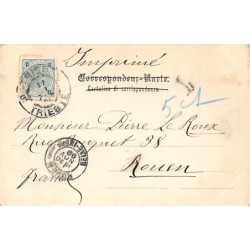 Imprimé
Correspondenz-Karte.
Cartolina di corrispondenza
T
5 ct
TRIESTE
Monsieur Pierre Le Roux
Rue 38
Rouen
france